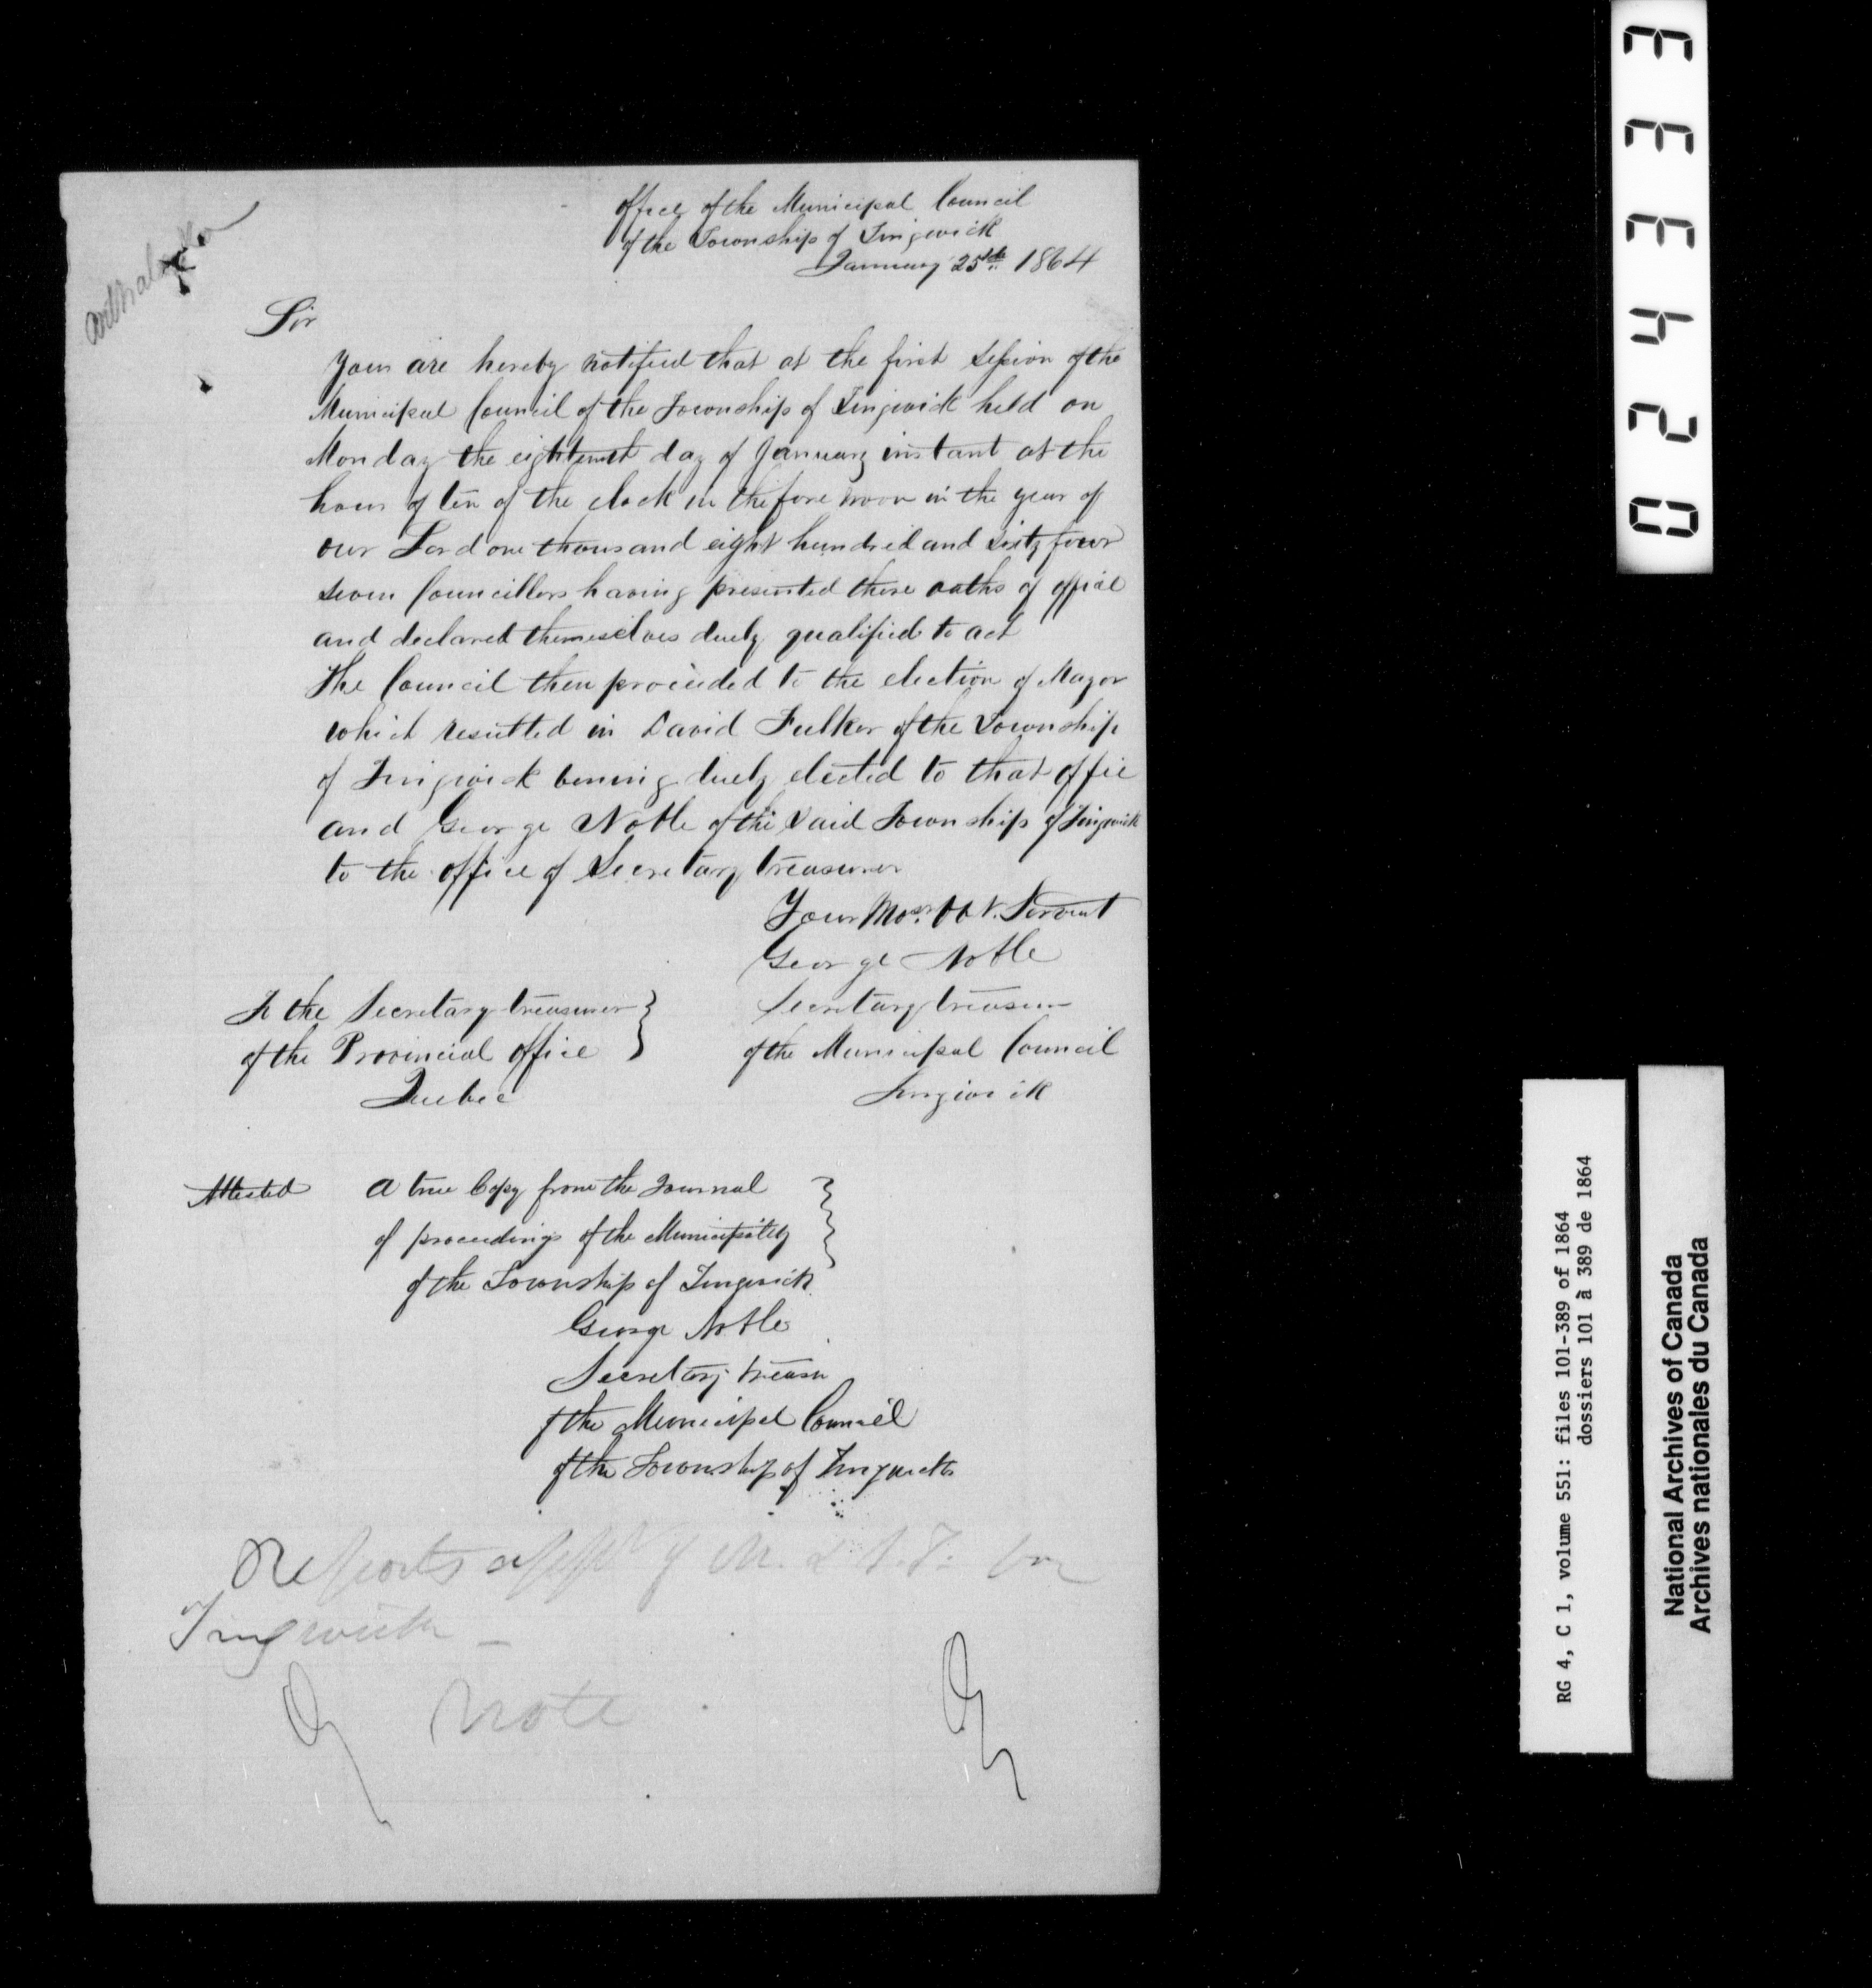 Arthabaska
Office of the Municipal Council
of the Township of Tingwick
January 25th 1864
Sir
Your are hereby notified that at the first Session of the
Municipal Council of the Township of Tingwick held on
Monday the eighteenth day of January instant at the
hour of ten of the clock in the fore noon in the year of
our Lord one thousand eight hundred and Sixty four
seven Councillors having presented there oaths of office
and declared themselves duely qualified to act
The Council then proceeded to the election of Mayor
which resulted in David Fulker of the Township
of Tingwick beening duely elected to that offic
and George Noble of the Said Township of Tingwick
to the office of Secretary treasurer
Your Most Obt. Servent
George Noble
Secretary treasurer
of the Municipal Council
Tingwick
To the Secretary treasurer
of the Provincial office
Quebec
Attested A true Copy from the Journal
of proceedings of the Municipality
of the Township of Tingwick
George Noble
Secretary treasu
of the Municipal Council
of the Township of Tingwick
Reports appt of M. & S.T. for
Tingwick -
Note
024333
RG 4, C 1, volume 551: files 101-389 of 1864
dossiers 101 à 389 de 1864
National Archives of Canada
Archives nationales du Canada